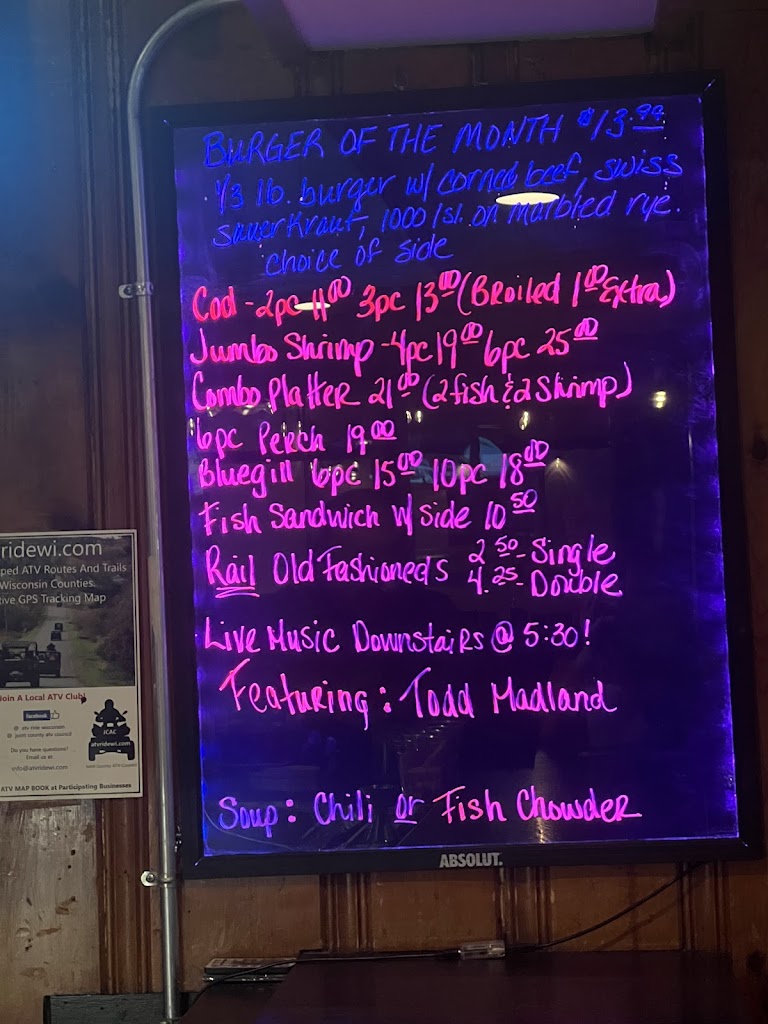 BURGER OF THE MONTH $13.99
1/3 lb. burger w/ corned beef, swiss
sauerkraut, 1000 Isl. on marbled rye.
choice of side
Cod - 2pc 11 00 3pc 13 00 (BRoiled 1 00 Extra)
Jumbo Shrimp - 4pc 19 00 6pc 25 00
Combo Platter 21 00 (2 fish & 2 Shrimp)
6pc Perch 19 00
Bluegill 6pc 15 00 10pc 18 00
Fish Sandwich w/ Side 10 50
Rail Old Fashioneds 2 50 - Single
4. 25 - Double
Live Music Downstairs @ 5:30!
Featuring: Todd Madland
Soup: Chili or Fish Chowder
ABSOLUT.
ridewi.com
ped ATV Routes And Trails
Wisconsin Counties.
ive GPS Tracking Map
Join A Local ATV Club!
facebook
Do you have questions?
Email us at
info@atvridewi.com
JCAC
atvridewi.com
ATV MAP BOOK at Participating Businesses